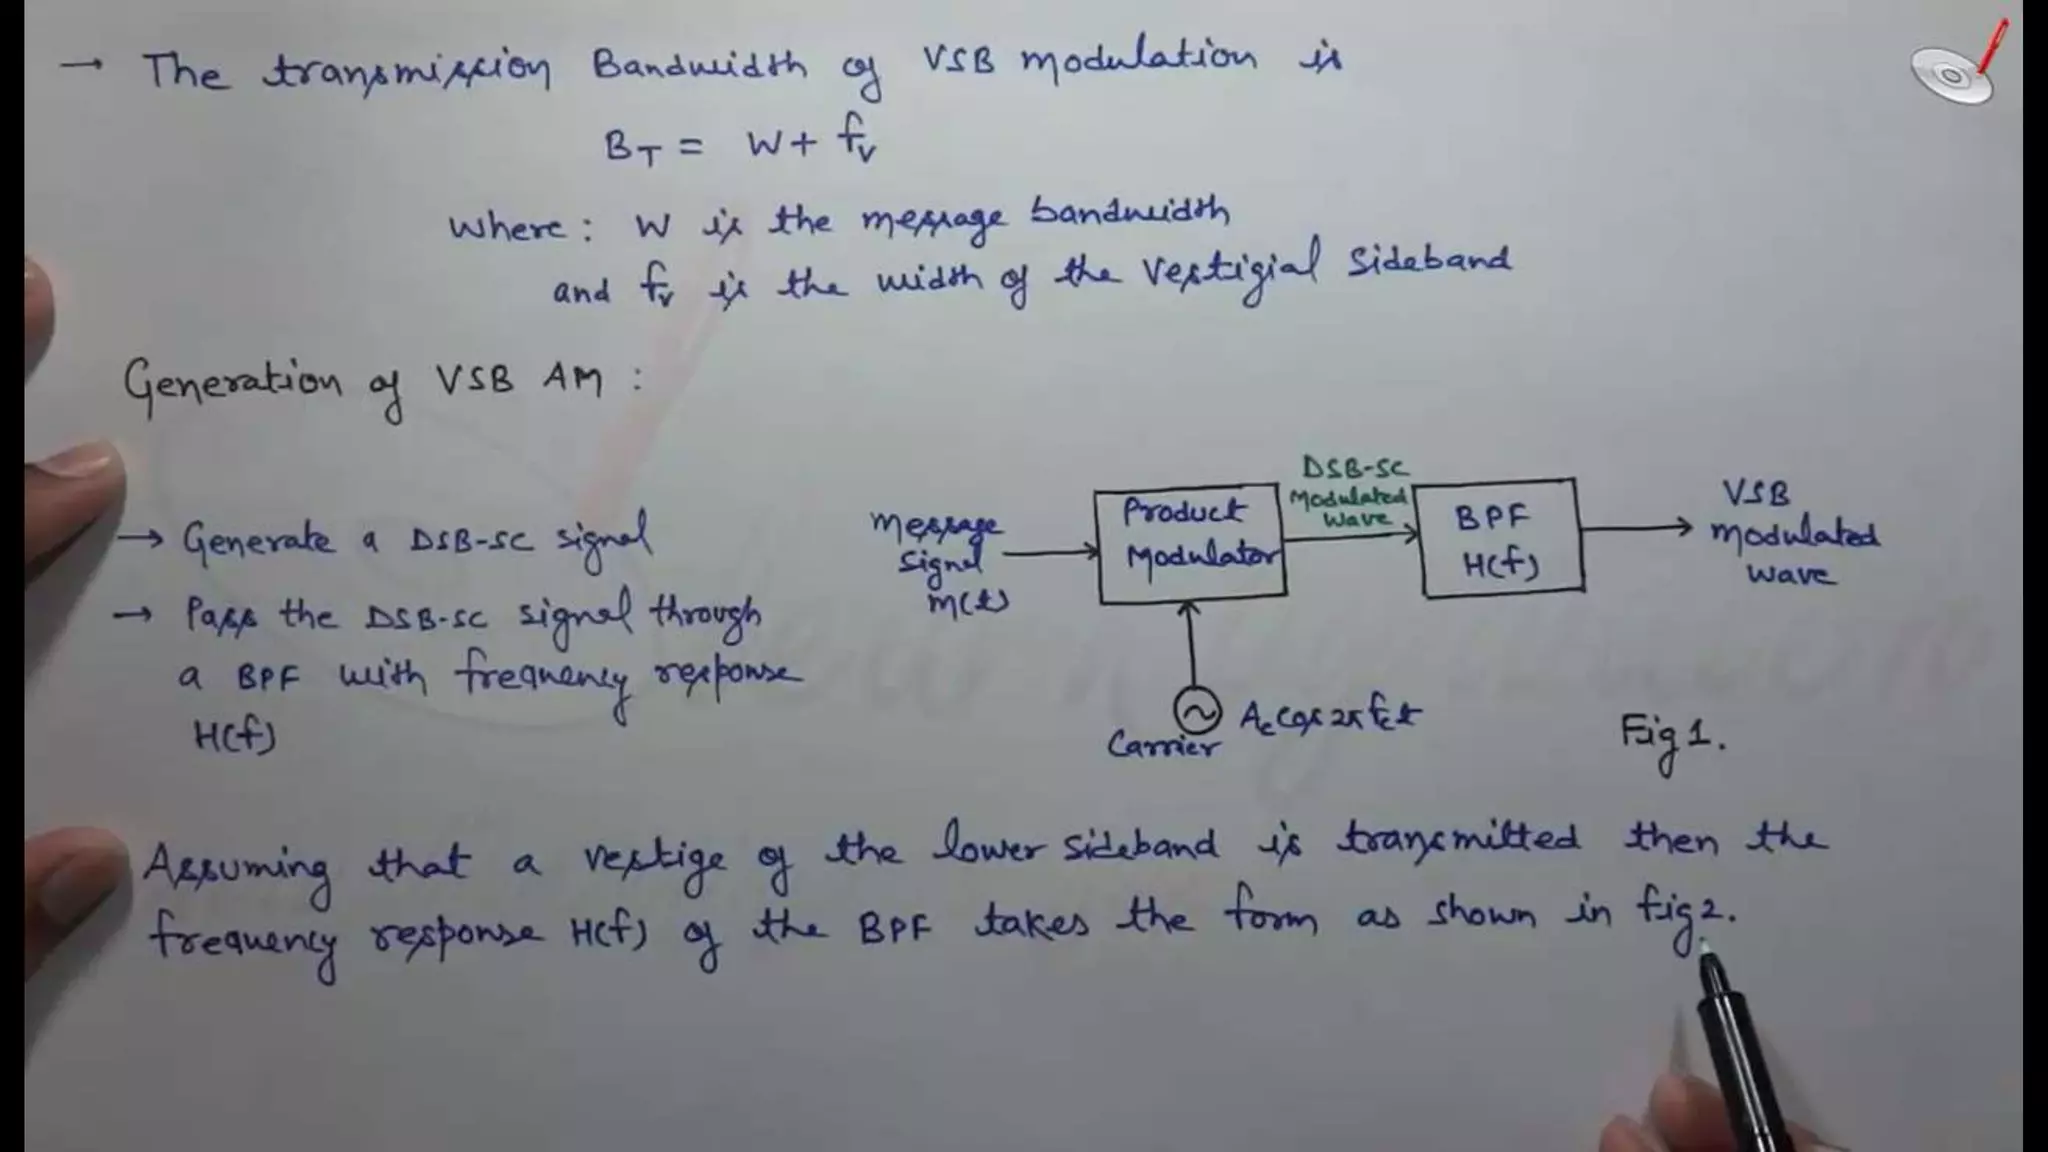 → The transmission Bandwidth of VSB modulation is
B_T = W + f_v
where: W is the message bandwidth
and f_v is the width of the vestigial sideband
Generation of VSB AM :
→ Generate a DSB-SC signal
→ Pass the DSB-SC signal through
a BPF with frequency response
H(f)
Message
signal
m(t)
Product
Modulator
DSB-SC
Modulated
wave
BPF
H(f)
VSB
modulated
wave
A_c cos 2π f_c t
Carrier
Fig 1.
Assuming that a vestige of the lower sideband is transmitted then the
frequency response H(f) of the BPF takes the form as shown in fig 2.